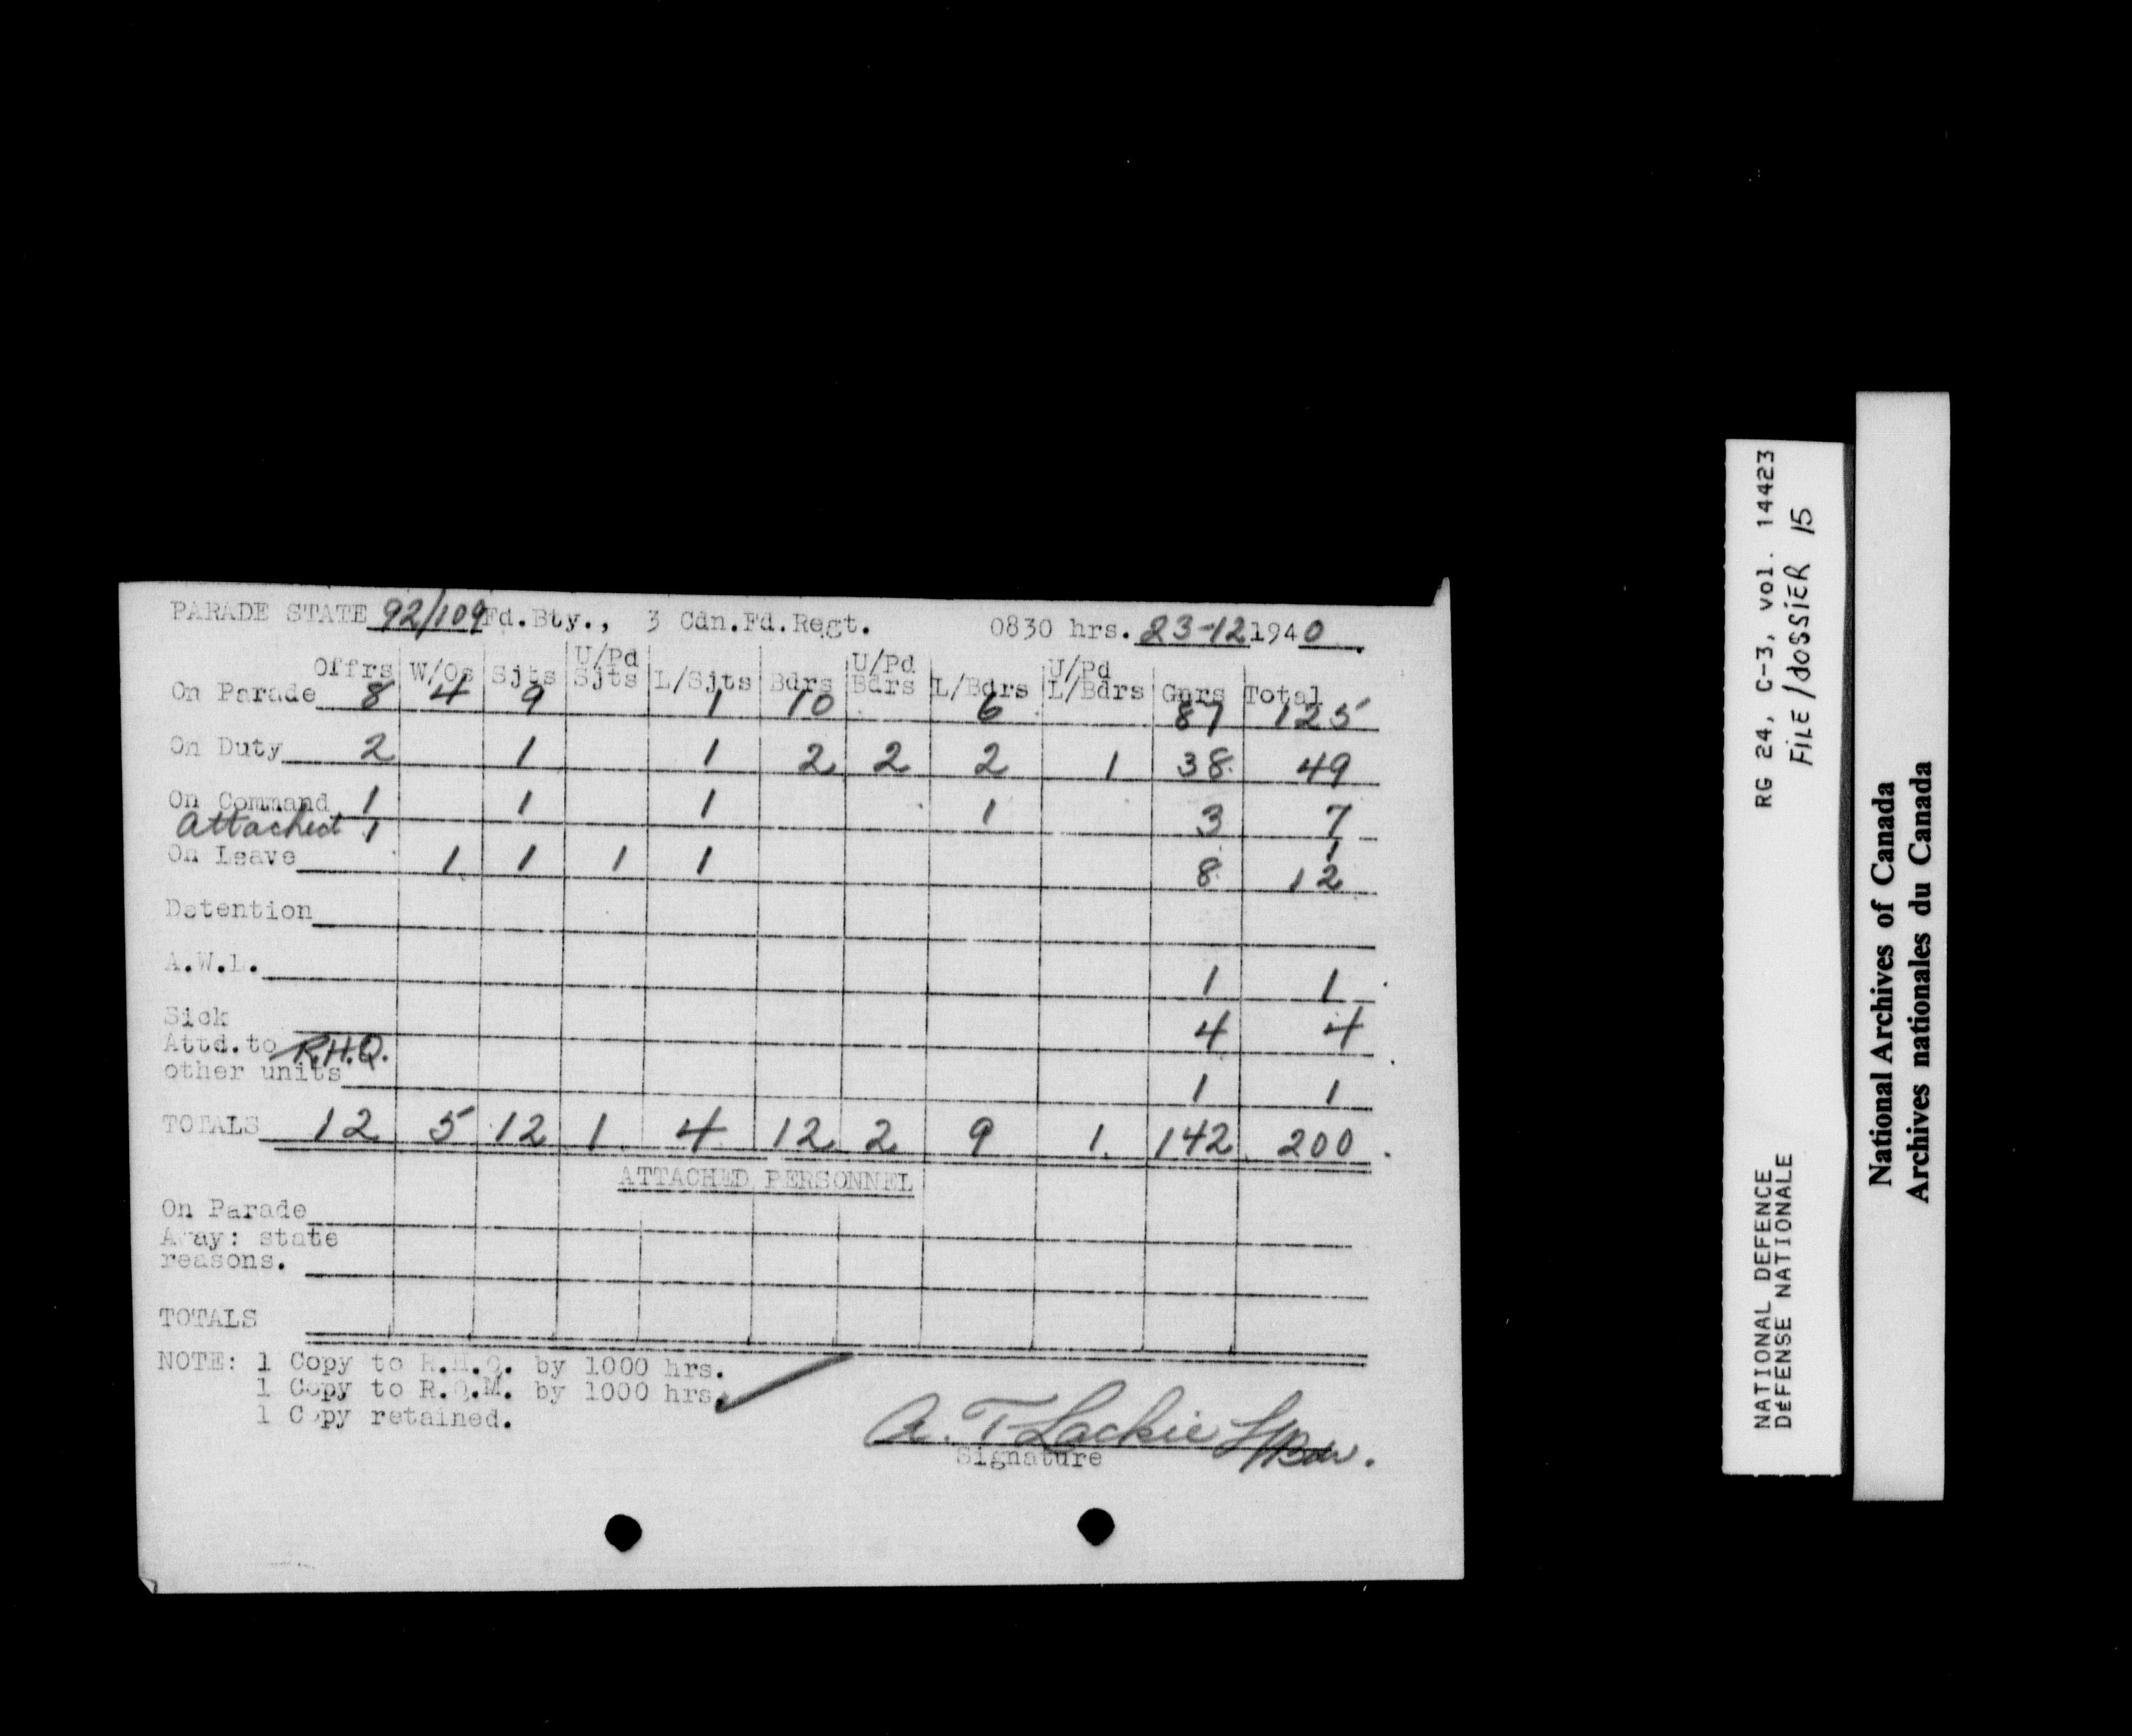 PARADE STATE 92/109 Fd.Bty., 3 Cdn.Fd.Regt. 0830 hrs. 23-12 1940.
Offrs W/Os Sjts U/Pd Sjts L/Sjts Bdrs U/Pd Bdrs L/Bdrs U/Pd L/Bdrs Gnrs Total
On Parade 8 4 9 1 10 6 87 125
On Duty 2 1 1 2 2 2 1 38 49
On Command 1 1 1 1 3 7
Attached 1 1
On Leave 1 1 1 1 8 12
Detention
A.W.L. 1 1
Sick 4 4
Attd.to R.H.Q.
other units 1 1
TOTALS 12 5 12 1 4 12 2 9 1 142 200
ATTACHED PERSONNEL
On Parade
Away: state
reasons.
TOTALS
NOTE: 1 Copy to R.H.Q. by 1000 hrs.
1 Copy to R.Q.M. by 1000 hrs.
1 Copy retained.
A. T. Lackie L/Bdr.
Signature
RG 24, C-3, vol. 14423
FILE/DOSSIER 15
NATIONAL DEFENCE
DÉFENSE NATIONALE
National Archives of Canada
Archives nationales du Canada